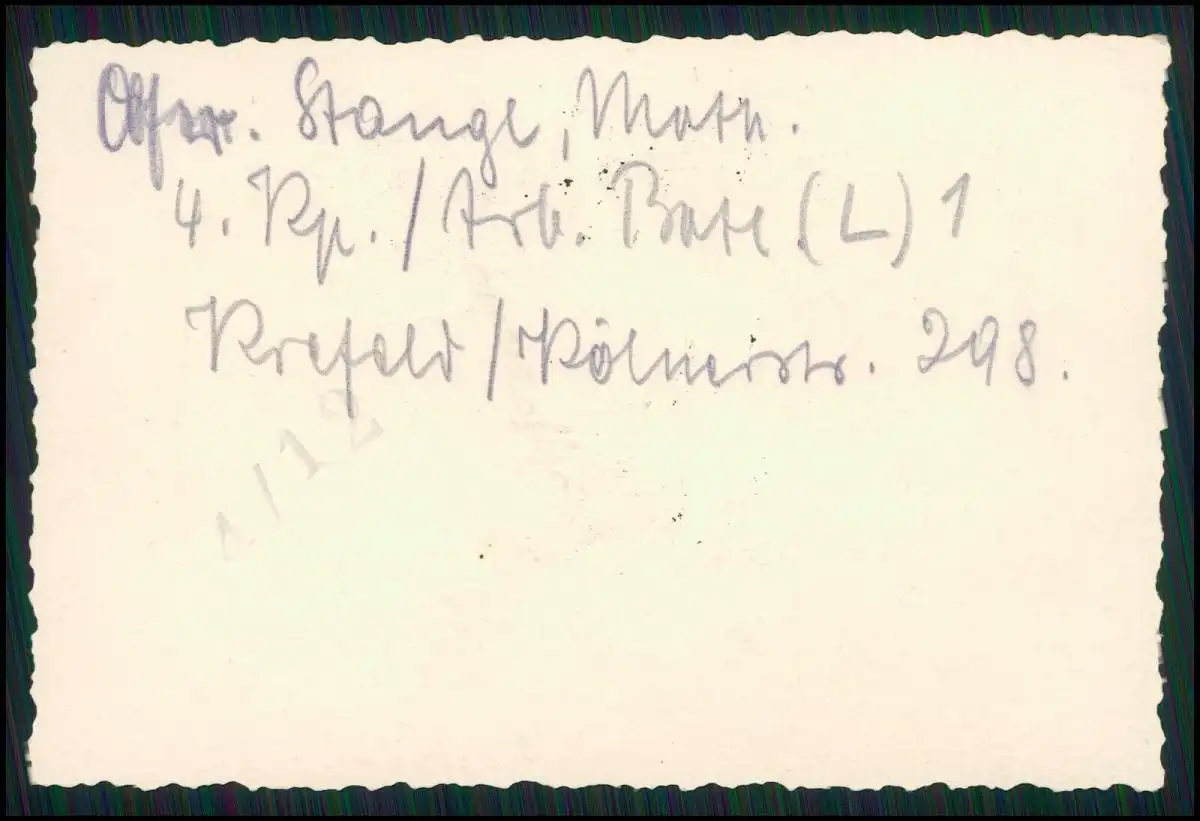 Ofw. Stangl, Math.
4. Kp. / Arb. Batl (L) 1
Krefeld / Kölnerstr. 298.
1/12